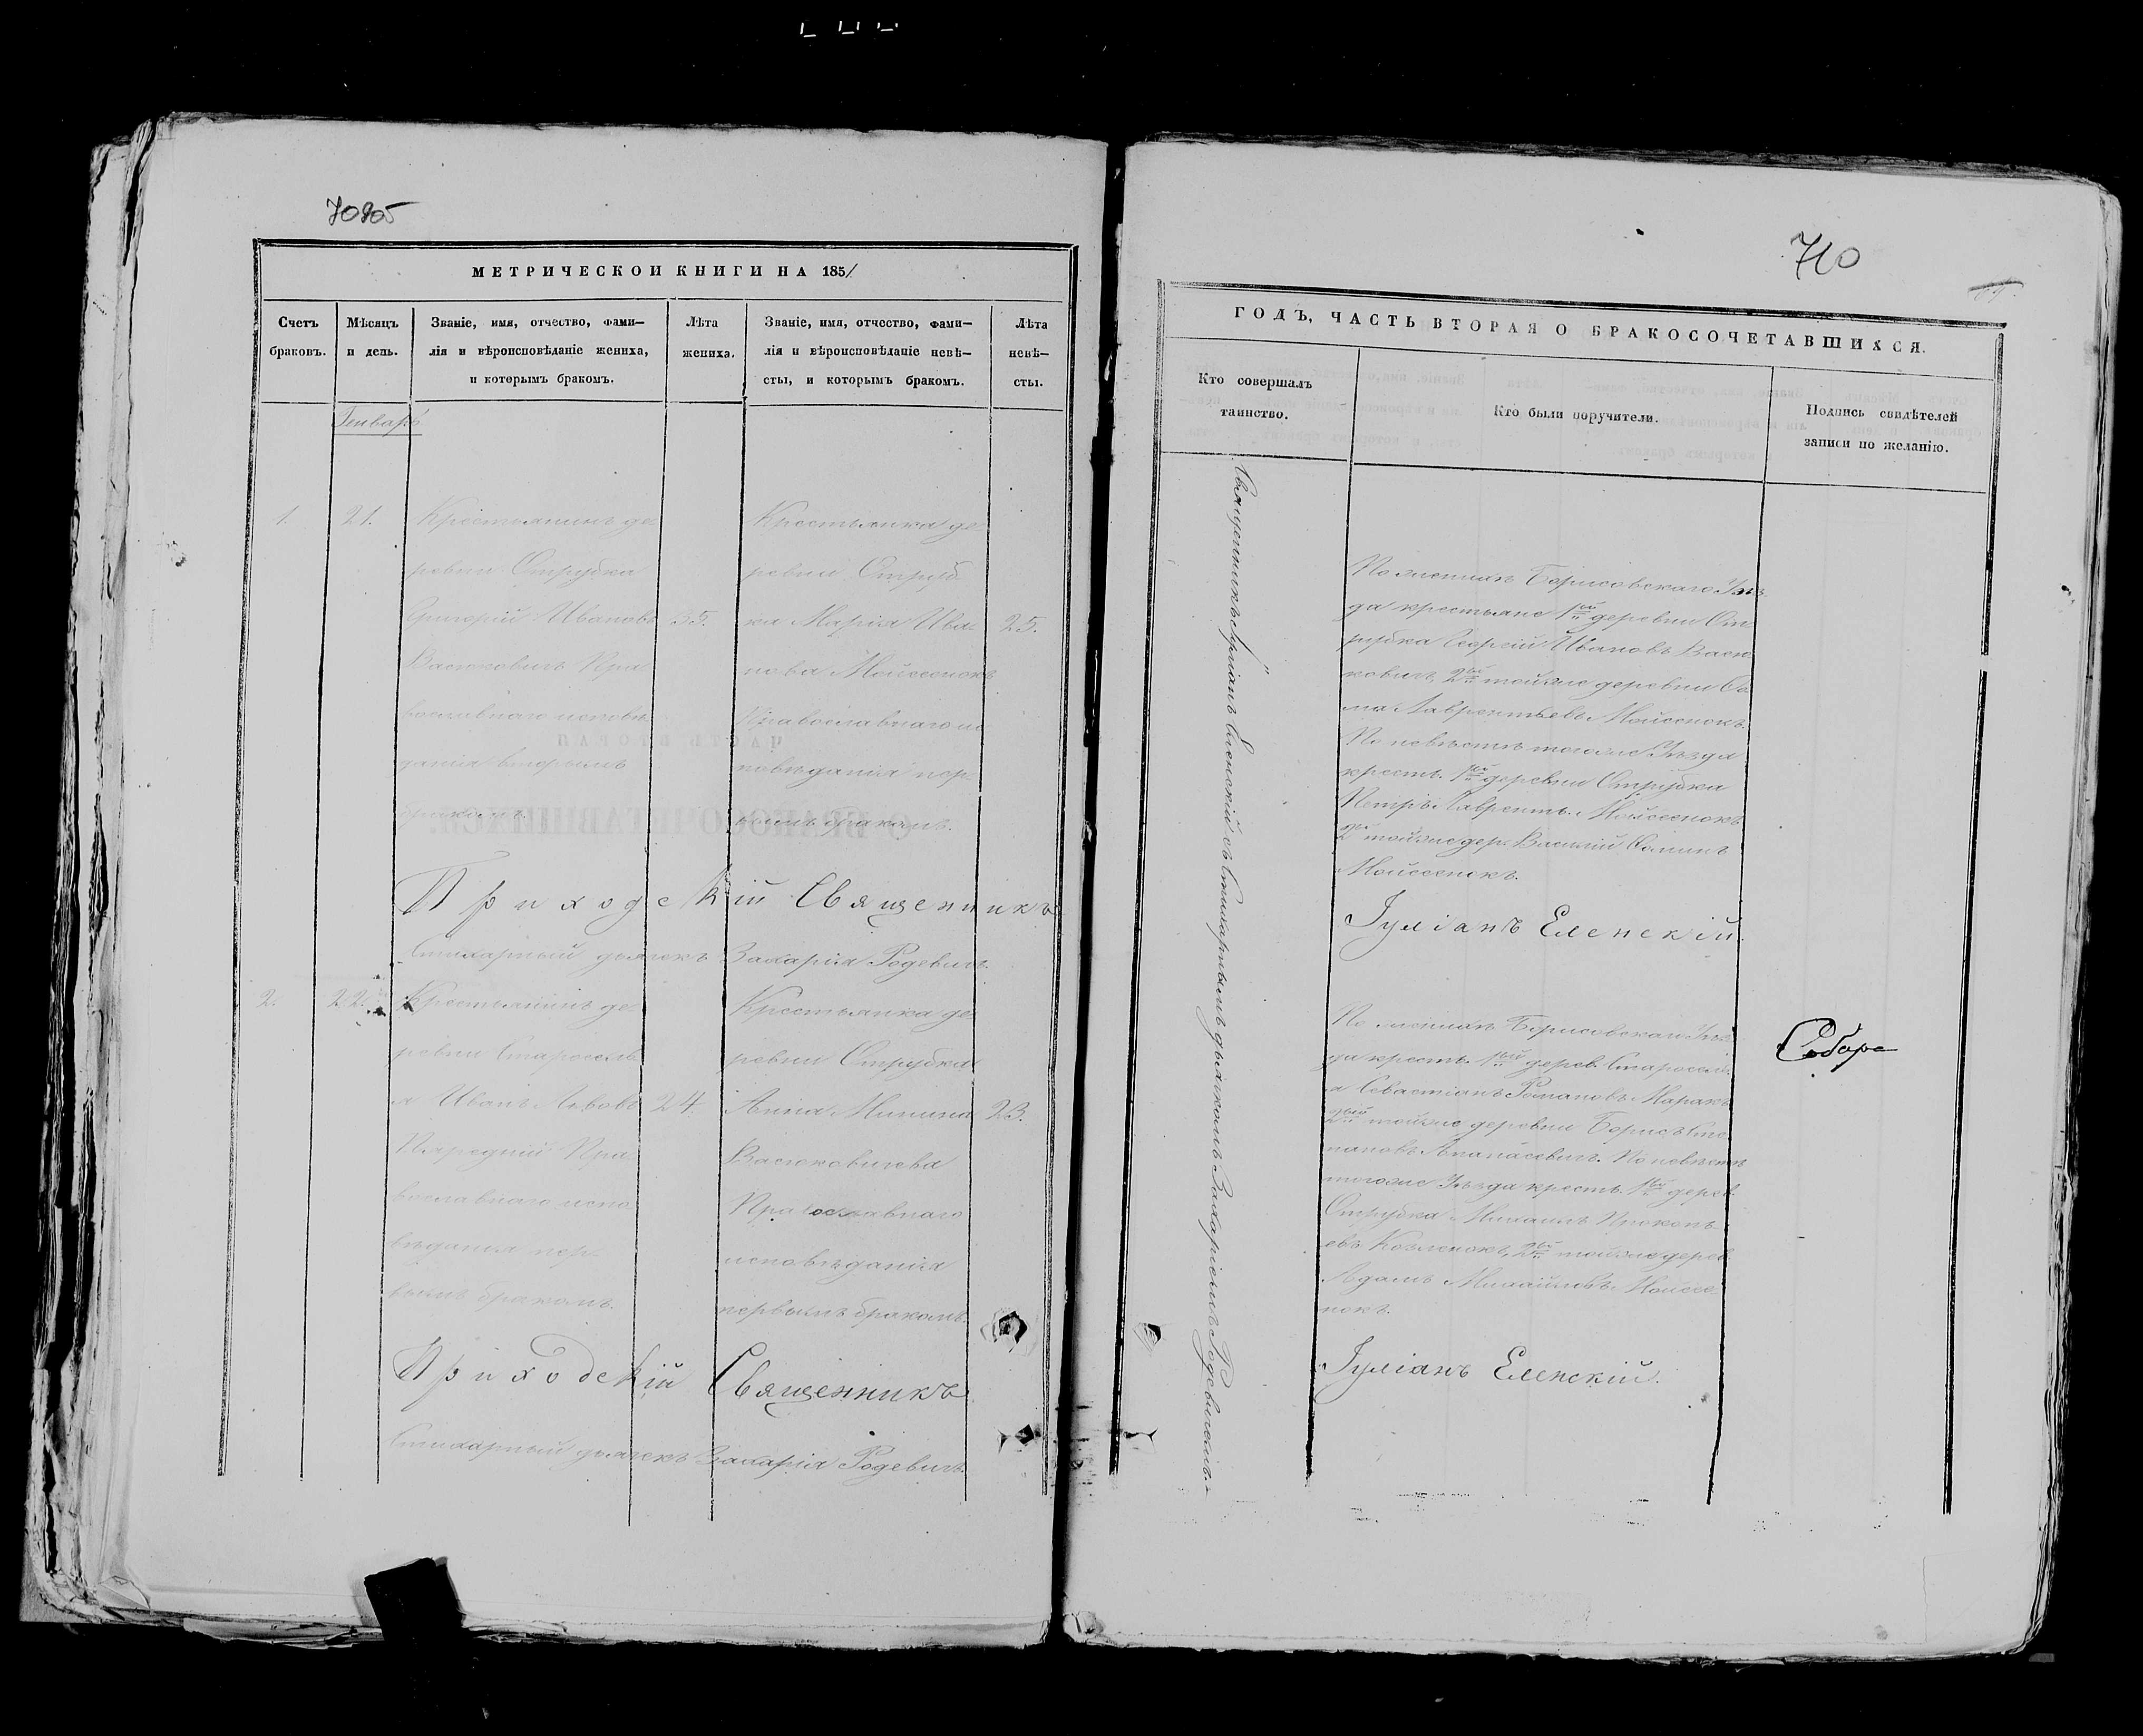 МЕТРИЧЕСКОЙ КНИГИ НА 1851
Счетъ браковъ.
Мѣсяцъ и день.
Званіе, имя, отчество, фами—
лія и вѣроисповѣданіе жениха,
и которымъ бракомъ.
Лѣта жениха.
Званіе, имя, отчество, фами—
лія и вѣроисповѣданіе невѣ—
сты, и которымъ бракомъ.
Лѣта невѣ—
сты.
Январь
1.
21.
Крестьянинъ де
ревни Отрубка
Григорій Ивановъ
Васюковичъ Пра
вославнаго исповѣ
данія вторымъ
бракомъ.
35.
Крестьянка де
ревни Отруб
ка Марія Ива
нова Мойсеенокъ
Православнаго ис
повѣданія пер
вымъ бракомъ.
25.
Приходскій Священникъ
Стихарный дьячекъ Захарія Родевичъ.
2.
22.
Крестьянинъ де
ревни Старосель
я Иванъ Львовъ
Пра
вославнаго испо
вѣданія пер
вымъ бракомъ.
24.
Крестьянка де
ревни Отрубка
Анна Минина
Васюковичева
Православнаго
исповѣданія
первымъ бракомъ.
23.
Приходскій Священникъ
Стихарный дьячекъ Захарія Родевичъ.
710
ГОДЪ, ЧАСТЬ ВТОРАЯ О БРАКОСОЧЕТАВШИХСЯ.
Кто совершалъ
таинство.
Кто были поручители.
Подпись свидѣтелей
записи по желанію.
Священникъ Іуліанъ Еленскій съ Стихарнымъ дьячкомъ Захаріемъ Родевичемъ.
По женихѣ Борисовскаго Уѣз
да крестьяне 1ый деревни От
рубка Сергій Ивановъ Васю
ковичъ, 2ый тойже деревни Фо
ма Лаврентьевъ Мойсеенокъ.
По невѣстѣ тогоже Уѣзда
крест. 1ый деревни Отрубка
Петръ Лаврент. Мойсеенокъ
2й тойже дер. Василій Фоминъ
Мойсеенокъ.
Іуліанъ Еленскій.
По женихѣ Борисовскаго Уѣз
да крест. 1ый дерев. Староселі
я Севастіанъ Романовъ
2ый тойже деревни Борисъ Сте
пановъ Апанасевичъ. По невѣстѣ
тогоже Уѣзда крест. 1ый дерев.
Отрубка Михаилъ Прокопь
евъ Козленокъ, 2ый тойже дерев
Адамъ Михайловъ Мойсее
нокъ.
Іуліанъ Еленскій.